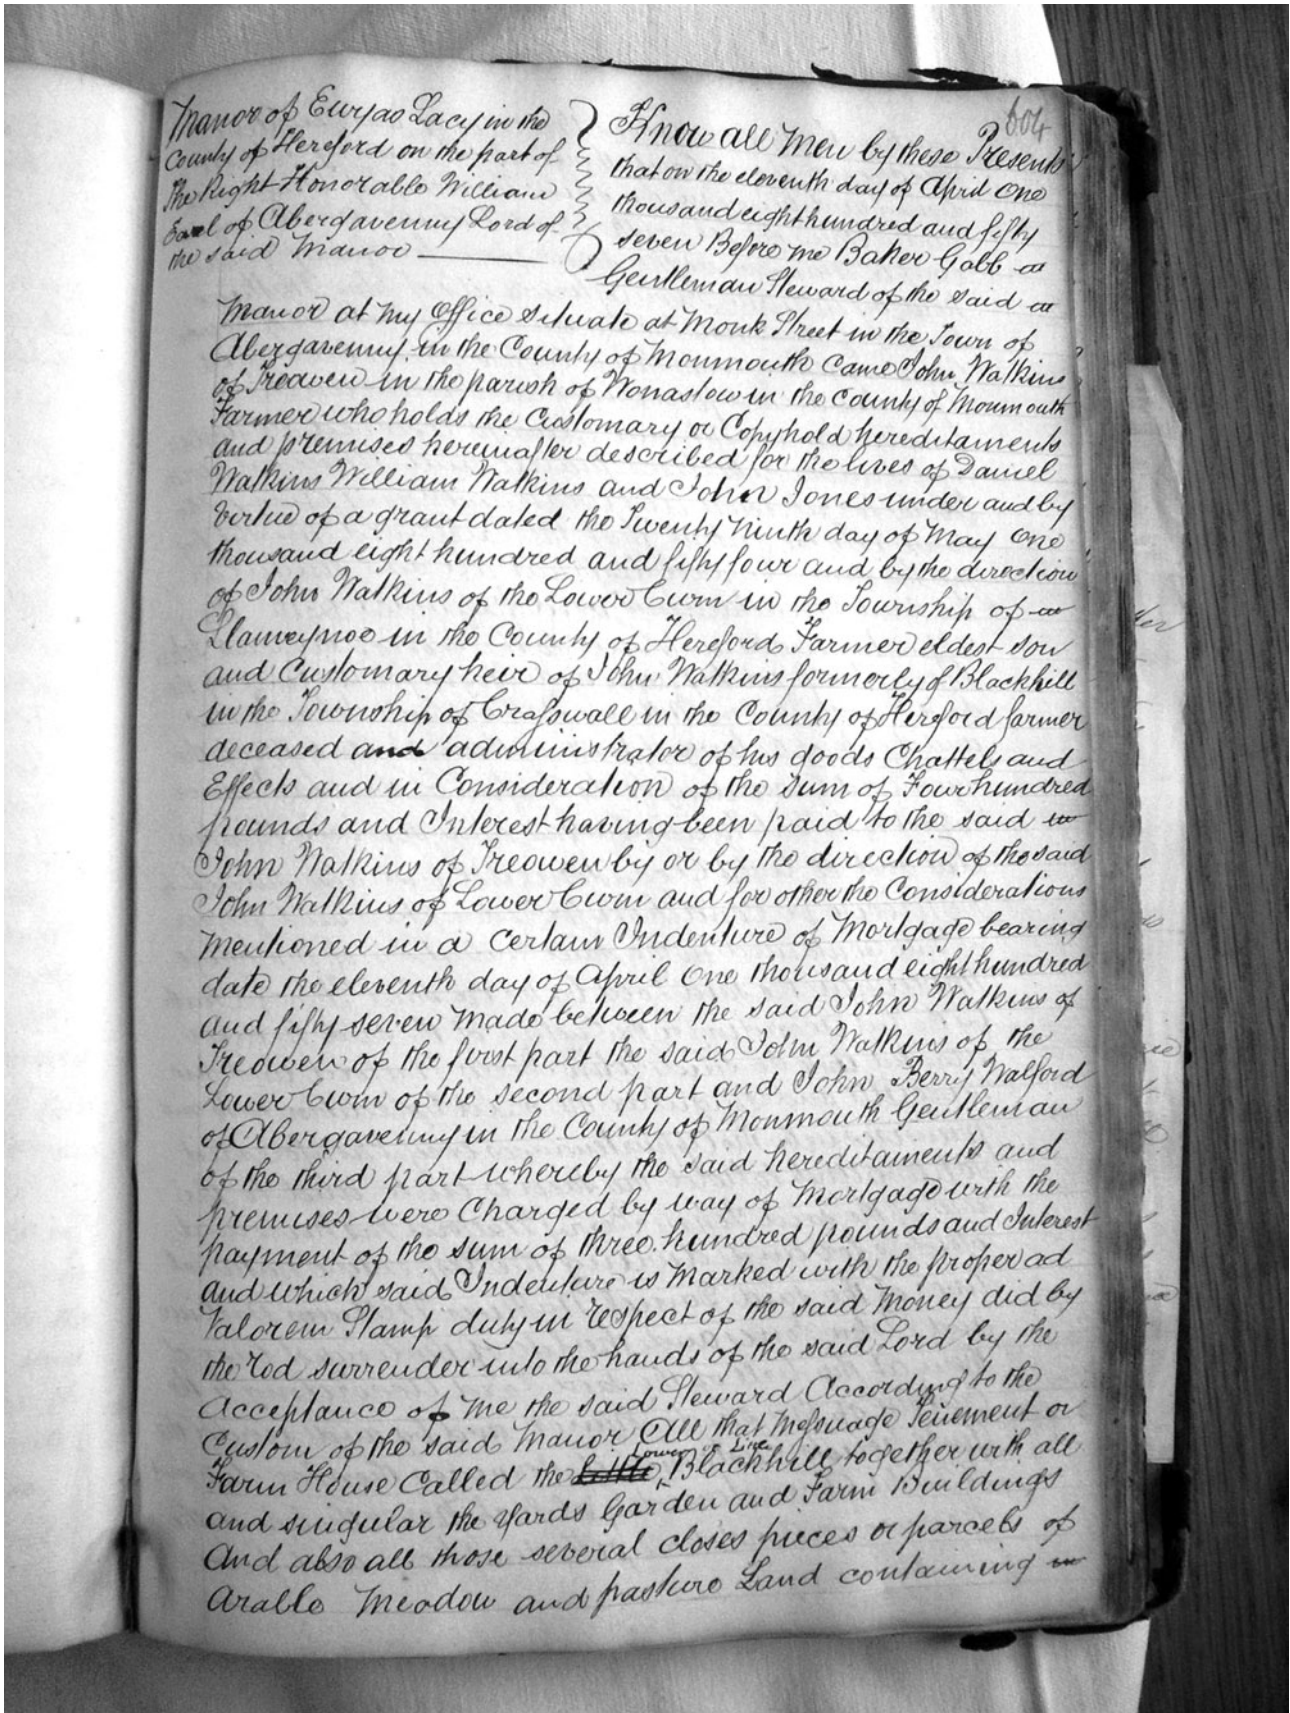 604
Manor of Ewyas Lacy in the
County of Hereford on the part of
The Right Honorable William
Earl of Abergavenny Lord of
the said Manor
Know all Men by these Presents
that on the eleventh day of April One
thousand eight hundred and fifty
seven Before me Baker Gabb
Gentleman Steward of the said
Manor at my Office situate at Monk Street in the Town of
Abergavenny in the County of Monmouth Came John Watkins
of Treowen in the parish of Wonastow in the County of Monmouth
Farmer who holds the Customary or Copyhold hereditaments
and premises hereinafter described for the lives of Daniel
Watkins William Watkins and John Jones under and by
Virtue of a grant dated the Twenty Ninth day of May One
thousand eight hundred and fifty four and by the direction
of John Watkins of the Lower Cwm in the Township of
Llanveynoe in the County of Hereford Farmer eldest son
and Customary heir of John Watkins formerly of Blackhill
in the Township of Crasswall in the County of Hereford farmer
deceased and administrator of his goods Chattels and
Effects and in Consideration of the Sum of Four hundred
pounds and Interest having been paid to the said
John Watkins of Treowen by or by the direction of the said
John Watkins of Lower Cwm and for other the Considerations
Mentioned in a Certain Indenture of Mortgage bearing
date the eleventh day of April One thousand eight hundred
and fifty seven Made between the said John Watkins of
Treowen of the first part the said John Watkins of the
Lower Cwm of the second part and John Berry Walford
of Abergavenny in the County of Monmouth Gentleman
of the third part whereby the said hereditaments and
premises were Charged by way of Mortgage with the
payment of the sum of three hundred pounds and Interest
and which said Indenture is Marked with the proper ad
Valorem Stamp duty in respect of the said Money did by
the rod surrender into the hands of the said Lord by the
Acceptance of me the said Steward According to the
Custom of the said Manor All that Messuage Tenement or
Farm House Called the Little Lower or Little Blackhill together with all
and singular the Yards Garden and Farm Buildings
And also all those several closes pieces or parcels of
Arable Meadow and pasture Land containing